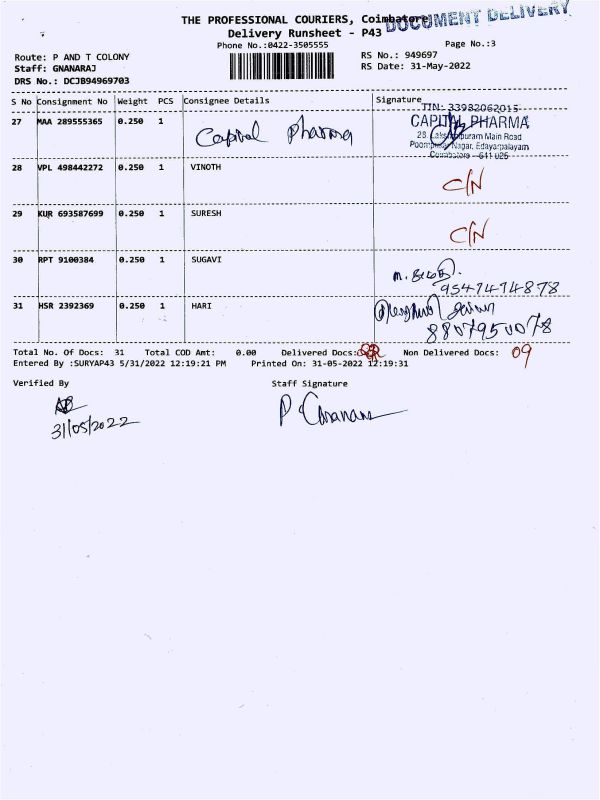 THE PROFESSIONAL COURIERS, Coimbatore
DOCUMENT DELIVERY
Delivery Runsheet - P43
Phone No.:0422-3505555
Page No.:3
Route: P AND T COLONY
RS No.: 949697
Staff: GNANARAJ
RS Date: 31-May-2022
DRS No.: DCJB94969703
S No Consignment No Weight PCS Consignee Details Signature
TIN: 33982062015
27 MAA 289555365 0.250 1 Capital Pharma
CAPITAL PHARMA
28 Main Road
Nagar, Edayarpalayam
Coimbatore - 641 025
28 VPL 498442272 0.250 1 VINOTH C/N
29 KUR 693587699 0.250 1 SURESH C/N
30 RPT 9100384 0.250 1 SUGAVI
31 HSR 2392369 0.250 1 HARI
8807950078
Total No. Of Docs: 31 Total COD Amt: 0.00 Delivered Docs: Non Delivered Docs: 09
Entered By :SURYAP43 5/31/2022 12:19:21 PM Printed On: 31-05-2022 12:19:31
Verified By Staff Signature
31/05/2022